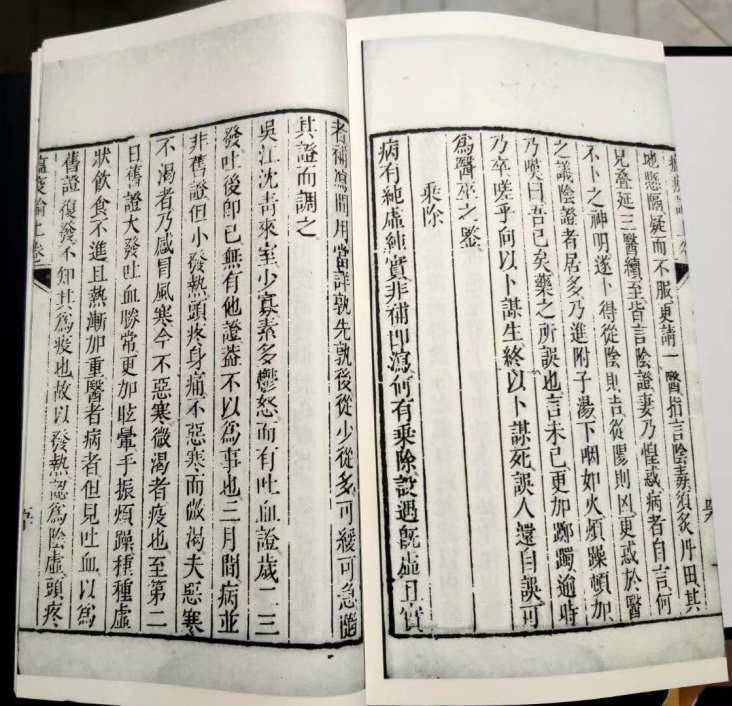 瘟疫論上卷
地懸隔疑而不服更請一醫指言陰毒須灸丹田其
見叠延三醫續至皆言陰證妻乃惶惑病者自言何
不卜之神明遂卜得從陰則吉從陽則凶更惑於醫
之議陰證者居多乃進附子湯下咽如火煩躁頓加
乃嘆曰吾已矣藥之所誤也言未已更加躑躅逾時
乃卒嗟乎向以卜謀生終以卜謀死誤人還自誤可
爲醫巫之鑒
乘除
病有純虛純實非補即瀉何有乘除設遇旣虛且實
者補瀉間用當詳孰先孰後從少從多可緩可急隨
其證而調之
吳江沈青來室少寡素多鬱怒而有吐血證歲二三
發吐後卽已無有他證葢不以爲事也三月間病並
非舊證但小發熱頭疼身痛不惡寒而微渴夫惡寒
不渴者乃感冒風寒今不惡寒微渴者疫也至第二
日舊證大發吐血勝常更加眩暈手振煩躁種種虛
狀飲食不進且熱漸加重醫者病者但見吐血以爲
舊證復發不知其爲疫也故以發熱認爲陰虛頭疼
瘟疫論上卷